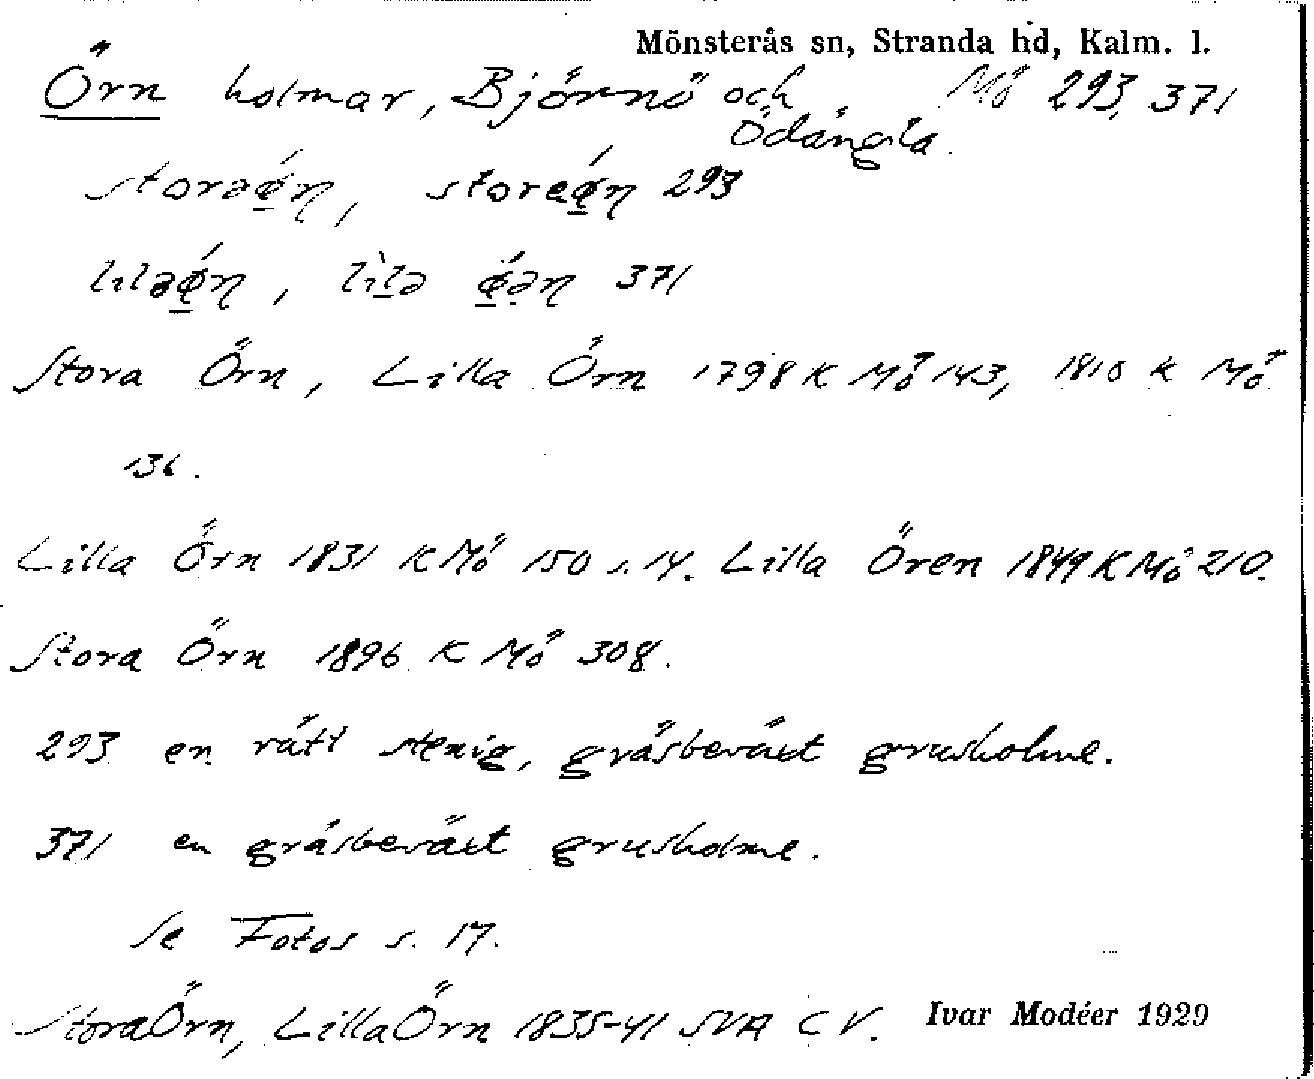 Mönsterås sn, Stranda hd, Kalm. l.
Örn holmar, Björnö och Ödängla. Mö 293, 371
293
371
Stora Örn, Lilla Örn 1798 K Mö 143, 1810 K Mö
136.
Lilla Örn 1831 K Mö 150 s. 14. Lilla Ören 1849 K Mö 210.
Stora Örn 1896 K Mö 308.
293 en rätt stenig, gräsbeväxt grusholme.
371 en gräsbeväxt grusholme.
Se Fotos s. 17.
Stora Örn, Lilla Örn 1835-41 SVA C V.
Ivar Modéer 1929